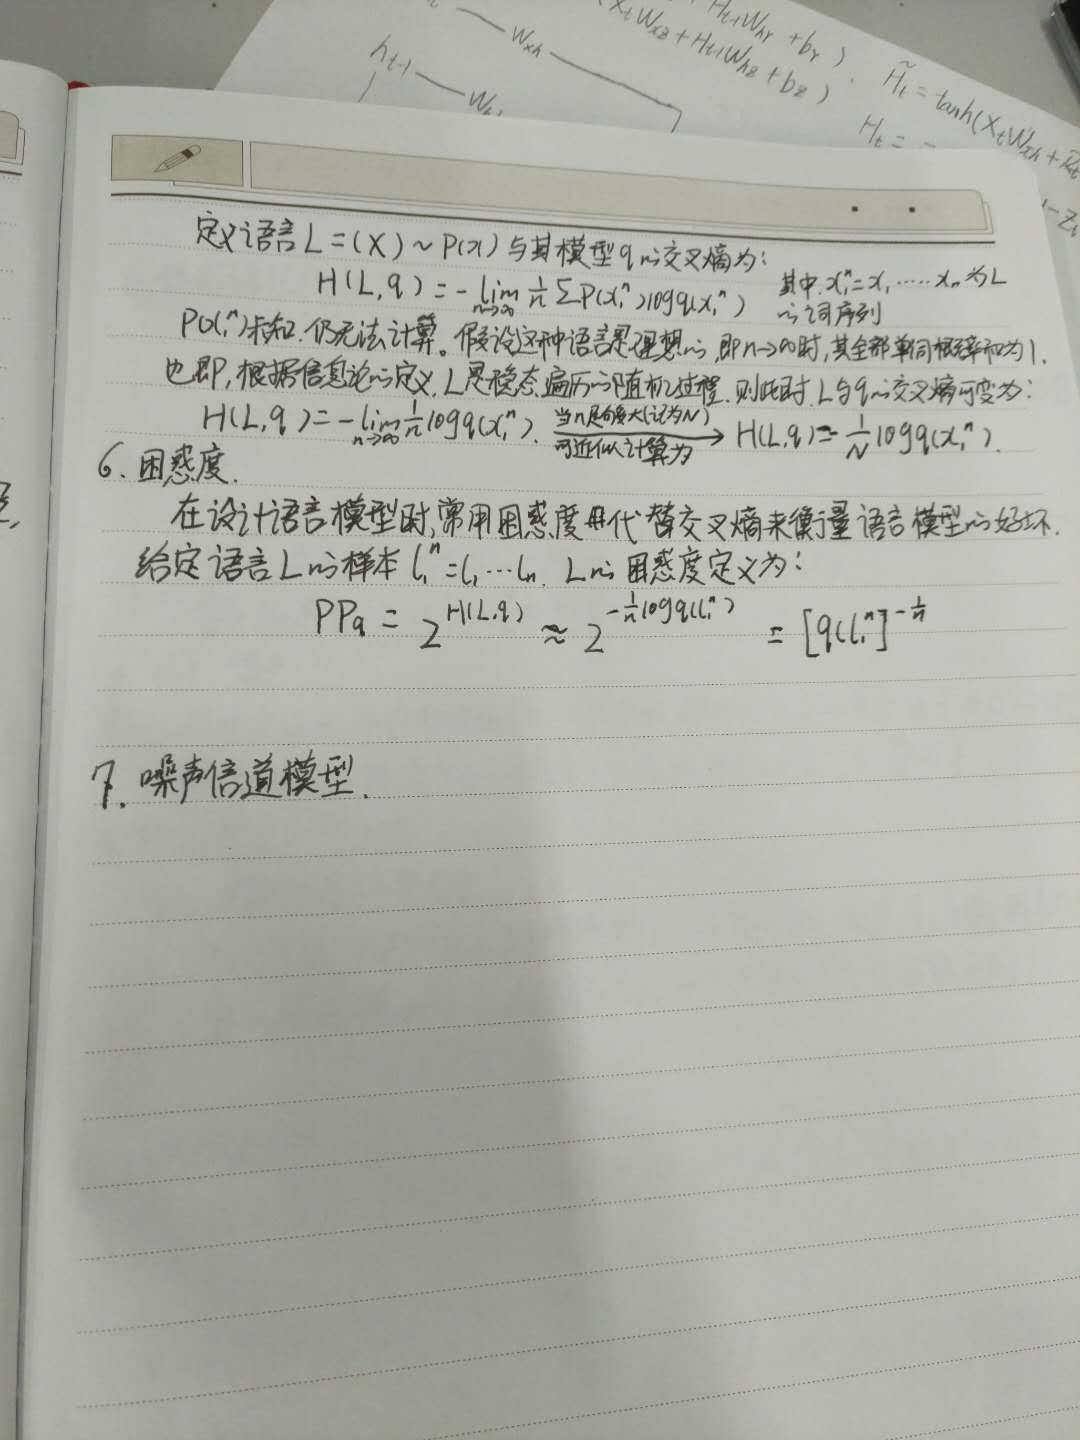 h_{t-1} — W
— W_{xh}
H_{t-1}W_{hr} + b_r)
X_tW_{xz} + H_{t-1}W_{hz} + b_z)
H̃_t = tanh(X_tW_{xh} + R_t
H_t =
定义语言L=(X)~P(x)与其模型q的交叉熵为:
H(L,q) = -lim_{n→∞} 1/n ΣP(x₁ⁿ)logq(x₁ⁿ) 其中x₁ⁿ=x₁……xₙ为L
的词序列
P(x₁ⁿ)未知.仍无法计算。假设这种语言是理想的,即n→∞时,其全部单词概率和为1.
也即,根据信息论的定义,L是稳态遍历的随机过程.则此时L与q的交叉熵可变为:
H(L,q)=-lim_{n→∞} 1/n logq(x₁ⁿ). 当n足够大(记为N) 可近似计算为 → H(L,q)≈-1/N logq(x₁ⁿ).
6.困惑度.
在设计语言模型时,常用困惑度代替交叉熵来衡量语言模型的好坏.
给定语言L的样本l₁ⁿ=l₁…lₙ. L的困惑度定义为:
PP_q = 2^{H(L,q)} ≈ 2^{-1/n logq(l₁ⁿ)} = [q(l₁ⁿ]^{-1/n}
7.噪声信道模型.